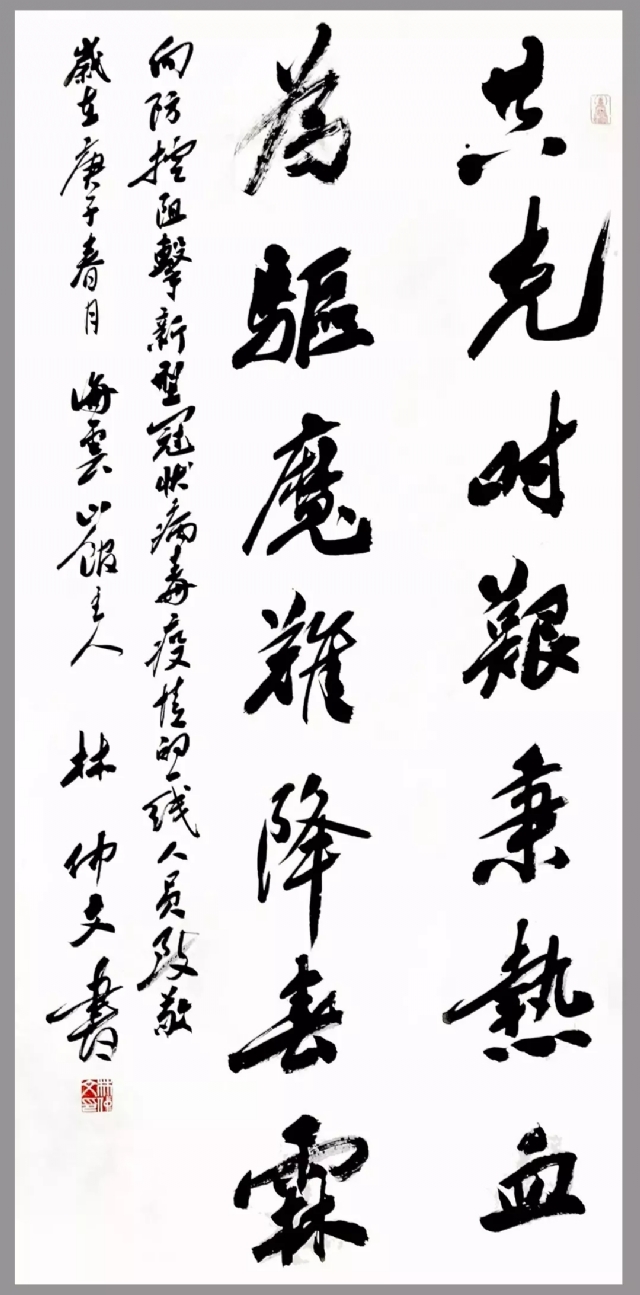 共克时艱秉熱血
為驅魔難降春霖
向防控阻擊新型冠狀病毒疫情的一线人员致敬
歲在庚子春月 海雲山館主人 林仲文書
林仲文印